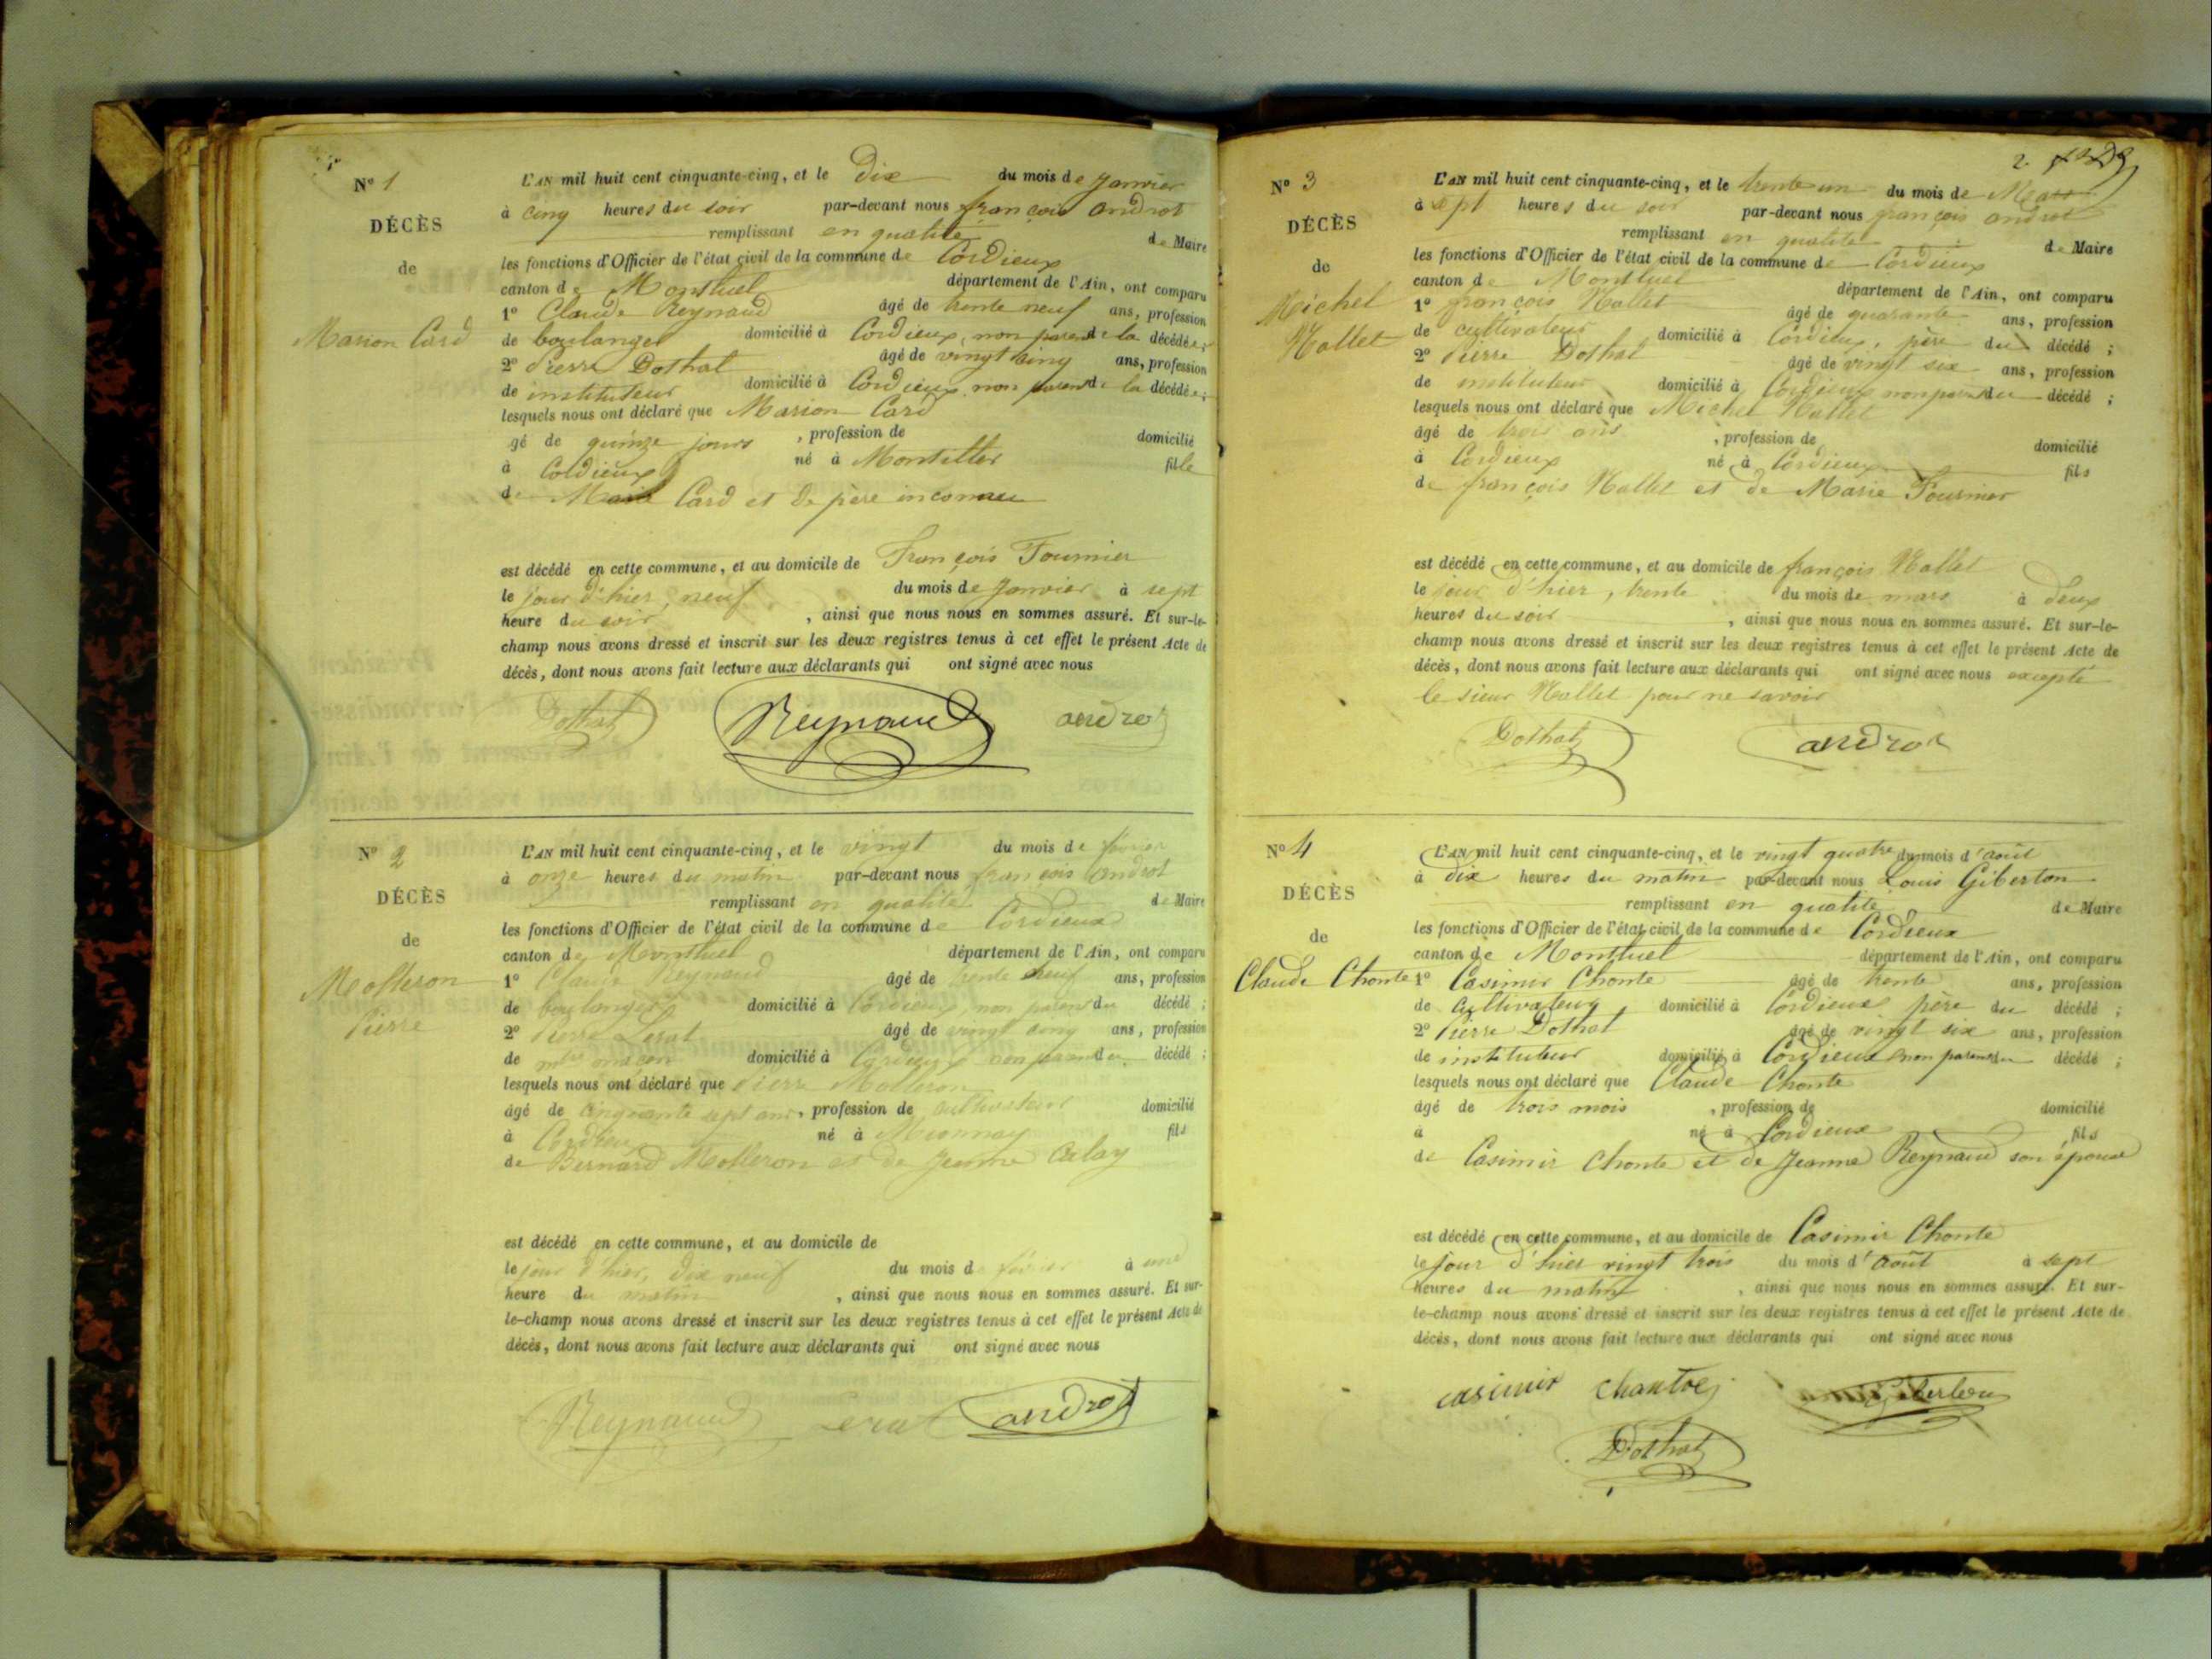 N° 1
DÉCÈS
de
Marion Card
L'AN mil huit cent cinquante-cinq, et le Dix du mois de Janvier
à cinq heures du soir par-devant nous françois androt
remplissant en qualité de Maire
les fonctions d'Officier de l'état civil de la commune de Cordieux
canton de Montluel département de l'Ain, ont comparu
1° Claude Reynaud âgé de trente neuf ans, profession
de boulanger domicilié à Cordieux, non parent de la décédée ;
2° Pierre Dothal âgé de vingt cinq ans, profession
de instituteur domicilié à Cordieux non parent de la décédée ;
lesquels nous ont déclaré que Marion Card
gé de quinze jours , profession de domicilié
à Cordieux né à Montellier fille
de Marie Card et de père inconnu
est décédé en cette commune, et au domicile de François Fournier
le jour d'hier, neuf du mois de Janvier à sept
heure du soir , ainsi que nous nous en sommes assuré. Et sur-le-
champ nous avons dressé et inscrit sur les deux registres tenus à cet effet le présent Acte de
décès, dont nous avons fait lecture aux déclarants qui ont signé avec nous
Dothal Reynaud androt
N° 2
DÉCÈS
de
Molleron
Pierre
L'AN mil huit cent cinquante-cinq, et le vingt du mois de février
à onze heures du matin par-devant nous françois androt
remplissant en qualité de Maire
les fonctions d'Officier de l'état civil de la commune de Cordieux
canton de Montluel département de l'Ain, ont comparu
1° Claude Reynaud âgé de trente neuf ans, profession
de boulanger domicilié à Cordieux, non parent du décédé ;
2° Pierre Lerat âgé de vingt cinq ans, profession
de maçon domicilié à Cordieux non parent du décédé ;
lesquels nous ont déclaré que Pierre Molleron
âgé de cinquante sept ans, profession de cultivateur domicilié
à Cordieux né à Mionnay fils
de Bernard Molleron et de Jeanne Calay
est décédé en cette commune, et au domicile de
le jour d'hier, dix neuf du mois de février à une
heure du matin , ainsi que nous nous en sommes assuré. Et sur-
le-champ nous avons dressé et inscrit sur les deux registres tenus à cet effet le présent Acte de
décès, dont nous avons fait lecture aux déclarants qui ont signé avec nous
Reynaud Lerat androt
2.
N° 3
DÉCÈS
de
Michel
Nallet
L'AN mil huit cent cinquante-cinq, et le trente un du mois de Mars
à sept heures du soir par-devant nous françois androt
remplissant en qualité de Maire
les fonctions d'Officier de l'état civil de la commune de Cordieux
canton de Montluel département de l'Ain, ont comparu
1° françois Nallet âgé de quarante ans, profession
de cultivateur domicilié à Cordieux, père du décédé ;
2° Pierre Dothal âgé de vingt six ans, profession
de instituteur domicilié à Cordieux non parent du décédé ;
lesquels nous ont déclaré que Michel Nallet
âgé de trois ans , profession de domicilié
à Cordieux né à Cordieux fils
de françois Nallet et de Marie Fournier
est décédé en cette commune, et au domicile de françois Nallet
le jour d'hier, trente du mois de mars à deux
heures du soir , ainsi que nous nous en sommes assuré. Et sur-le-
champ nous avons dressé et inscrit sur les deux registres tenus à cet effet le présent Acte de
décès, dont nous avons fait lecture aux déclarants qui ont signé avec nous excepté
le sieur Nallet pour ne savoir
Dothal androt
N° 4
DÉCÈS
de
Claude Chonte
L'AN mil huit cent cinquante-cinq, et le vingt quatre du mois d'août
à dix heures du matin par-devant nous Louis Giberton
remplissant en qualité de Maire
les fonctions d'Officier de l'état civil de la commune de Cordieux
canton de Montluel département de l'Ain, ont comparu
1° Casimir Chonte âgé de trente ans, profession
de cultivateur domicilié à Cordieux père du décédé ;
2° Pierre Dothal âgé de vingt six ans, profession
de instituteur domicilié à Cordieux non parent du décédé ;
lesquels nous ont déclaré que Claude Chonte
âgé de trois mois , profession de domicilié
à né à Cordieux fils
de Casimir Chonte et de Jeanne Reynaud son épouse
est décédé en cette commune, et au domicile de Casimir Chonte
le jour d'hier vingt trois du mois d'août à sept
heures du matin , ainsi que nous nous en sommes assuré. Et sur-
le-champ nous avons dressé et inscrit sur les deux registres tenus à cet effet le présent Acte de
décès, dont nous avons fait lecture aux déclarants qui ont signé avec nous
casimir chantre Giberton
Dothal